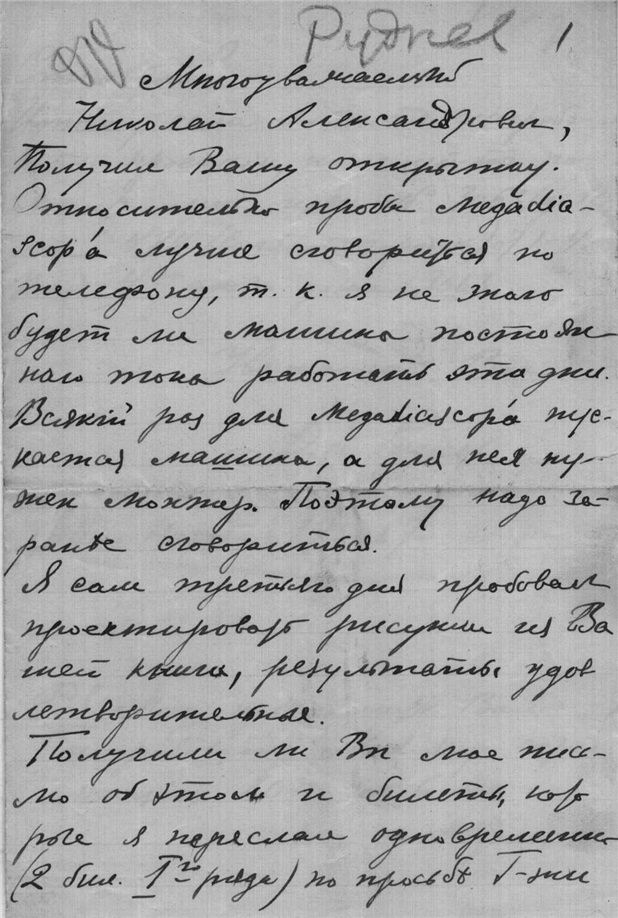 Руднев 1
Многоуважаемый
Николай Александрович,
Получил Вашу открытку.
Относительно пробы Megadia-
scop'а лучше сговориться по
телефону, т. к. я не знаю
будет ли машина постоян
наго тока работать эти дни.
Всякій раз для Megadiascop'а пус-
кается машина, а для нея ну-
жен монтер. Поэтому надо за-
ранѣе сговориться.
Я сам третьяго дня пробовал
проектировать рисунки из Ва
шей книги, результаты удов
летворительные.
Получили ли Вы мое пись-
мо об этом и билеты, кото
рые я переслал одновременно
(2 бил. I-го ряда) по просьбѣ Г-жи